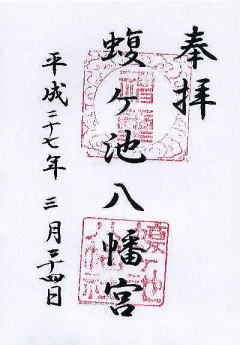 奉拝
蝮ヶ池八幡宮
平成二十七年 三月二十四日